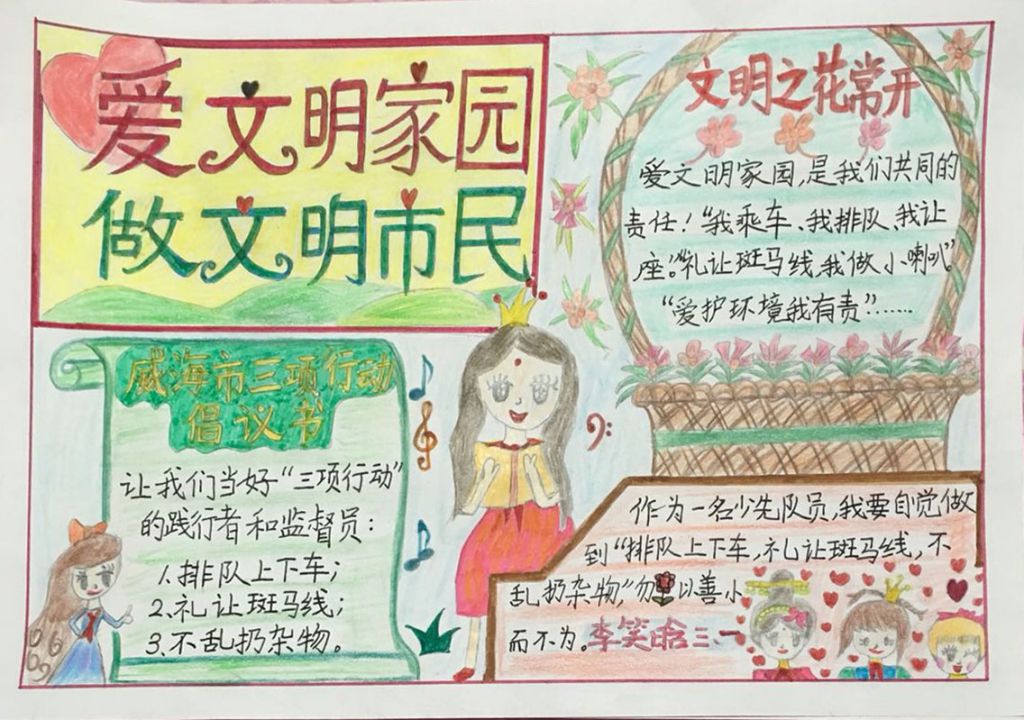 爱文明家园
做文明市民
文明之花常开
爱文明家园,是我们共同的
责任!“我乘车、我排队、我让
座。”“礼让斑马线,我做小喇叭”
“爱护环境我有责”……
威海市三项行动
倡议书
让我们当好“三项行动”
的践行者和监督员:
1.排队上下车;
2.礼让斑马线;
3.不乱扔杂物。
作为一名少先队员,我要自觉做
到“排队上下车,礼让斑马线,不
乱扔杂物,”勿以善小
而不为。李笑晗三.一